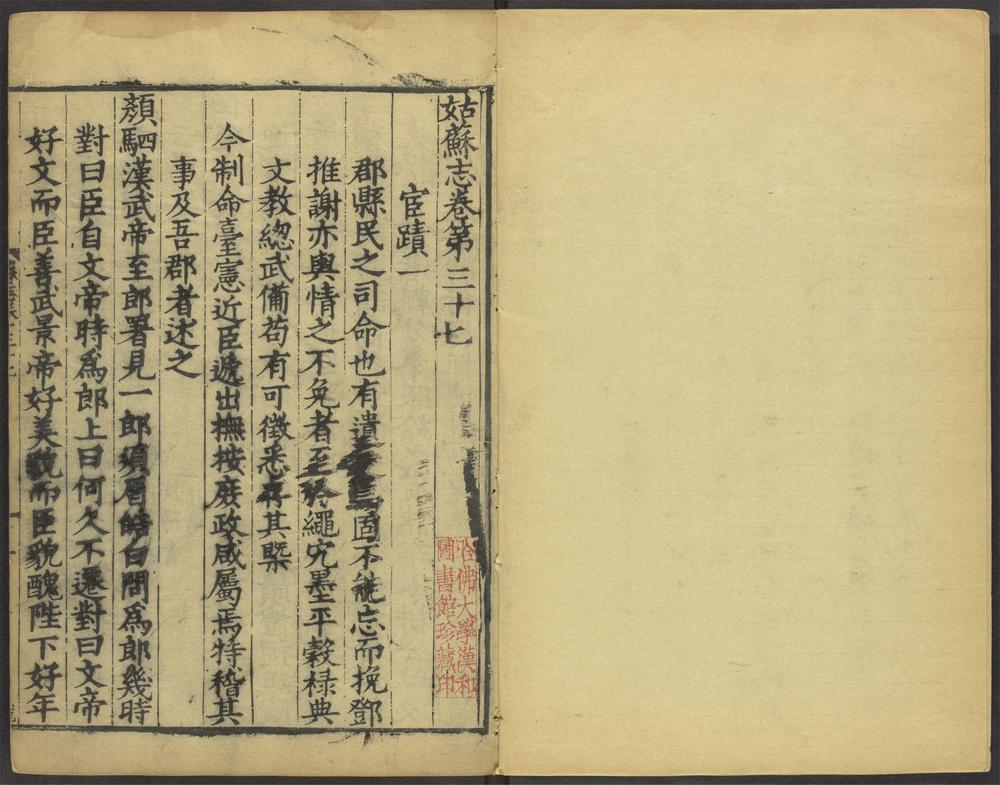 姑蘇志卷第三十七
宦蹟一
郡縣民之司命也有遺愛焉固不能忘而挽鄧
推謝亦輿情之不免者至於繩宄墨平穀祿典
文教緫武備苟有可徵悉存其槩
今制命臺憲近臣遞出撫按庶政咸屬焉特稽其
事及吾郡者述之
顏駟漢武帝至郎署見一郎鬚眉皓白問爲郎幾時
對曰臣自文帝時爲郎上曰何久不遷對曰文帝
好文而臣善武景帝好美貌而臣貌醜陛下好年
哈佛大學漢和
圖書館珍藏印